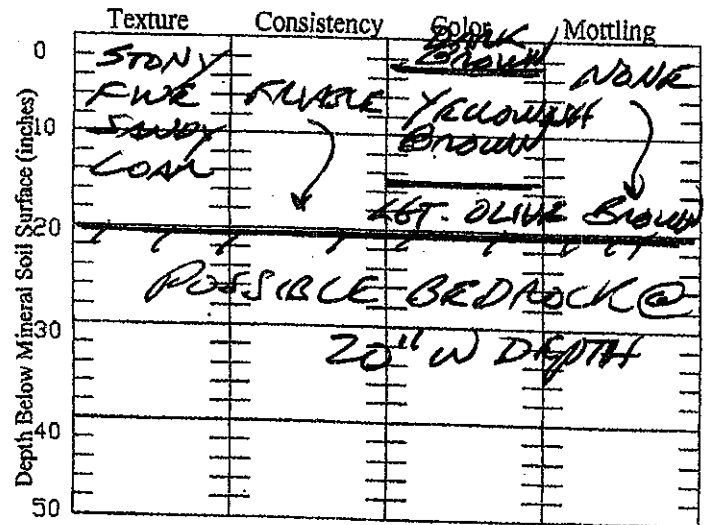 Texture Consistency Color Mottling
Depth Below Mineral Soil Surface (inches)
0
10
20
30
40
50
STONY
FINE
SANDY
LOAM
FRIABLE
DARK
BROWN
YELLOWISH
BROWN
LGT. OLIVE BROWN
NONE
POSSIBLE BEDROCK @
20" DEPTH